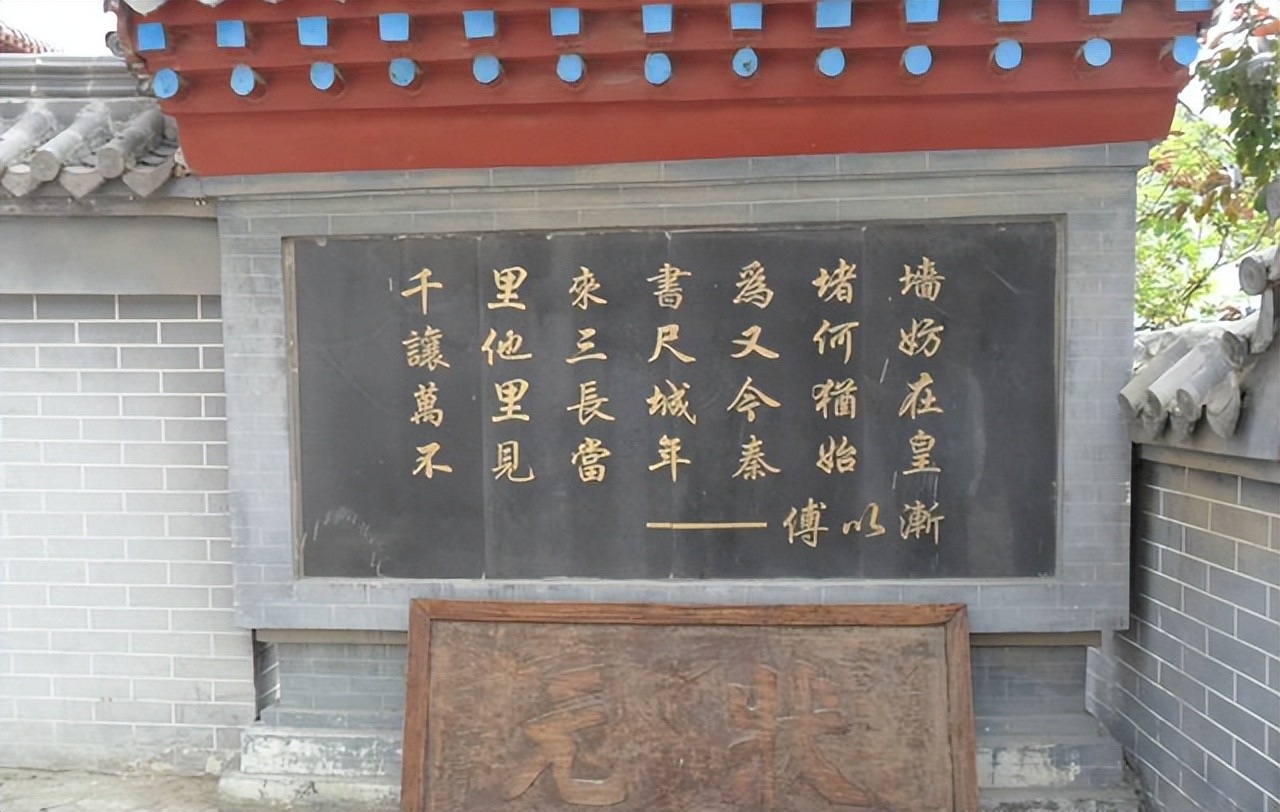 千里來書爲堵墙
讓他三尺又何妨
萬里長城今猶在
不見當年秦始皇
——傅以漸
狀元